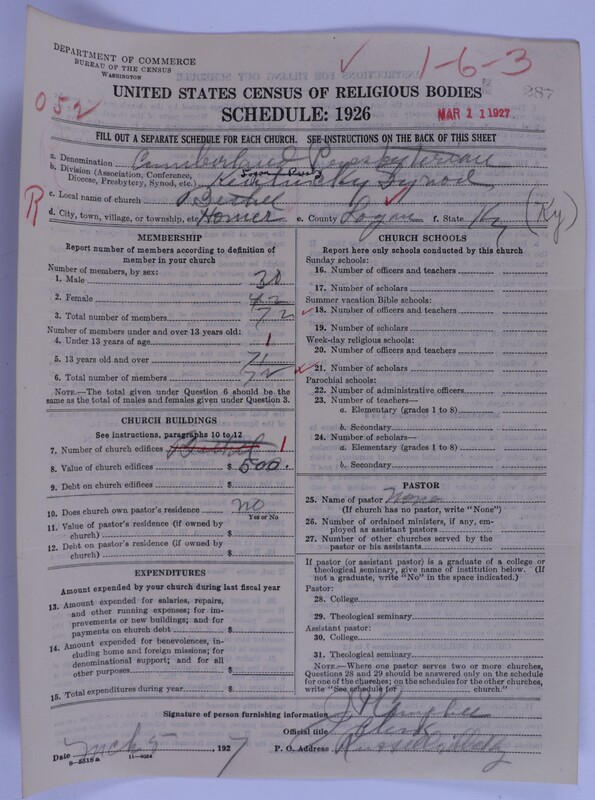 DEPARTMENT OF COMMERCE
BUREAU OF THE CENSUS
WASHINGTON
1-6-3
287
052
UNITED STATES CENSUS OF RELIGIOUS BODIES
SCHEDULE: 1926
MAR 11 1927
FILL OUT A SEPARATE SCHEDULE FOR EACH CHURCH. SEE INSTRUCTIONS ON THE BACK OF THIS SHEET
a. Denomination Cumberland Presbyterian
b. Division (Association, Conference, Diocese, Presbytery, Synod, etc.) Kentucky Synod
Logan Presb
c. Local name of church Bethel
R
d. City, town, village, or township, etc. Homer e. County Logan f. State Ky (Ky)
MEMBERSHIP
Report number of members according to definition of
member in your church
Number of members, by sex:
1. Male 30
2. Female 42
3. Total number of members 72
Number of members under and over 13 years old:
4. Under 13 years of age 1
5. 13 years old and over 71
6. Total number of members 72
NOTE.—The total given under Question 6 should be
same as the total of males and females given under Question 3.
CHURCH BUILDINGS
See instructions, paragraphs 10 to 12
7. Number of church edifices Bethel 1
8. Value of church edifices $ 500.
9. Debt on church edifices $
10. Does church own pastor's residence no
Yes or No
11. Value of pastor's residence (if owned by
church) $
12. Debt on pastor's residence (if owned by
church) $
EXPENDITURES
Amount expended by your church during last fiscal year
13. Amount expended for salaries, repairs,
and other running expenses; for im-
provements or new buildings; and for
payments on church debt $
14. Amount expended for benevolences, in-
cluding home and foreign missions; for
denominational support; and for all
other purposes $
15. Total expenditures during year $
CHURCH SCHOOLS
Report here only schools conducted by this church
Sunday schools:
16. Number of officers and teachers
17. Number of scholars
Summer vacation Bible schools:
18. Number of officers and teachers
19. Number of scholars
Week-day religious schools:
20. Number of officers and teachers
21. Number of scholars
Parochial schools:
22. Number of administrative officers
23. Number of teachers—
a. Elementary (grades 1 to 8)
b. Secondary
24. Number of scholars—
a. Elementary (grades 1 to 8)
b. Secondary
PASTOR
25. Name of pastor None
(If church has no pastor, write "None")
26. Number of ordained ministers, if any, em-
ployed as assistant pastors
27. Number of other churches served by the
pastor or his assistants
If pastor (or assistant pastor) is a graduate of a college or
theological seminary, give name of institution below. (If
not a graduate, write "No" in the space indicated.)
Pastor:
28. College
29. Theological seminary
Assistant pastor:
30. College
31. Theological seminary
NOTE.—Where one pastor serves two or more churches,
Questions 28 and 29 should be answered only on the schedule
for one of the churches; on the schedules for the other churches,
write "See schedule for church."
Signature of person furnishing information J H Campbell
Official title Clerk
Date Mch 5, 1927 P. O. Address Russellville Ky
8-5518a 11-9054